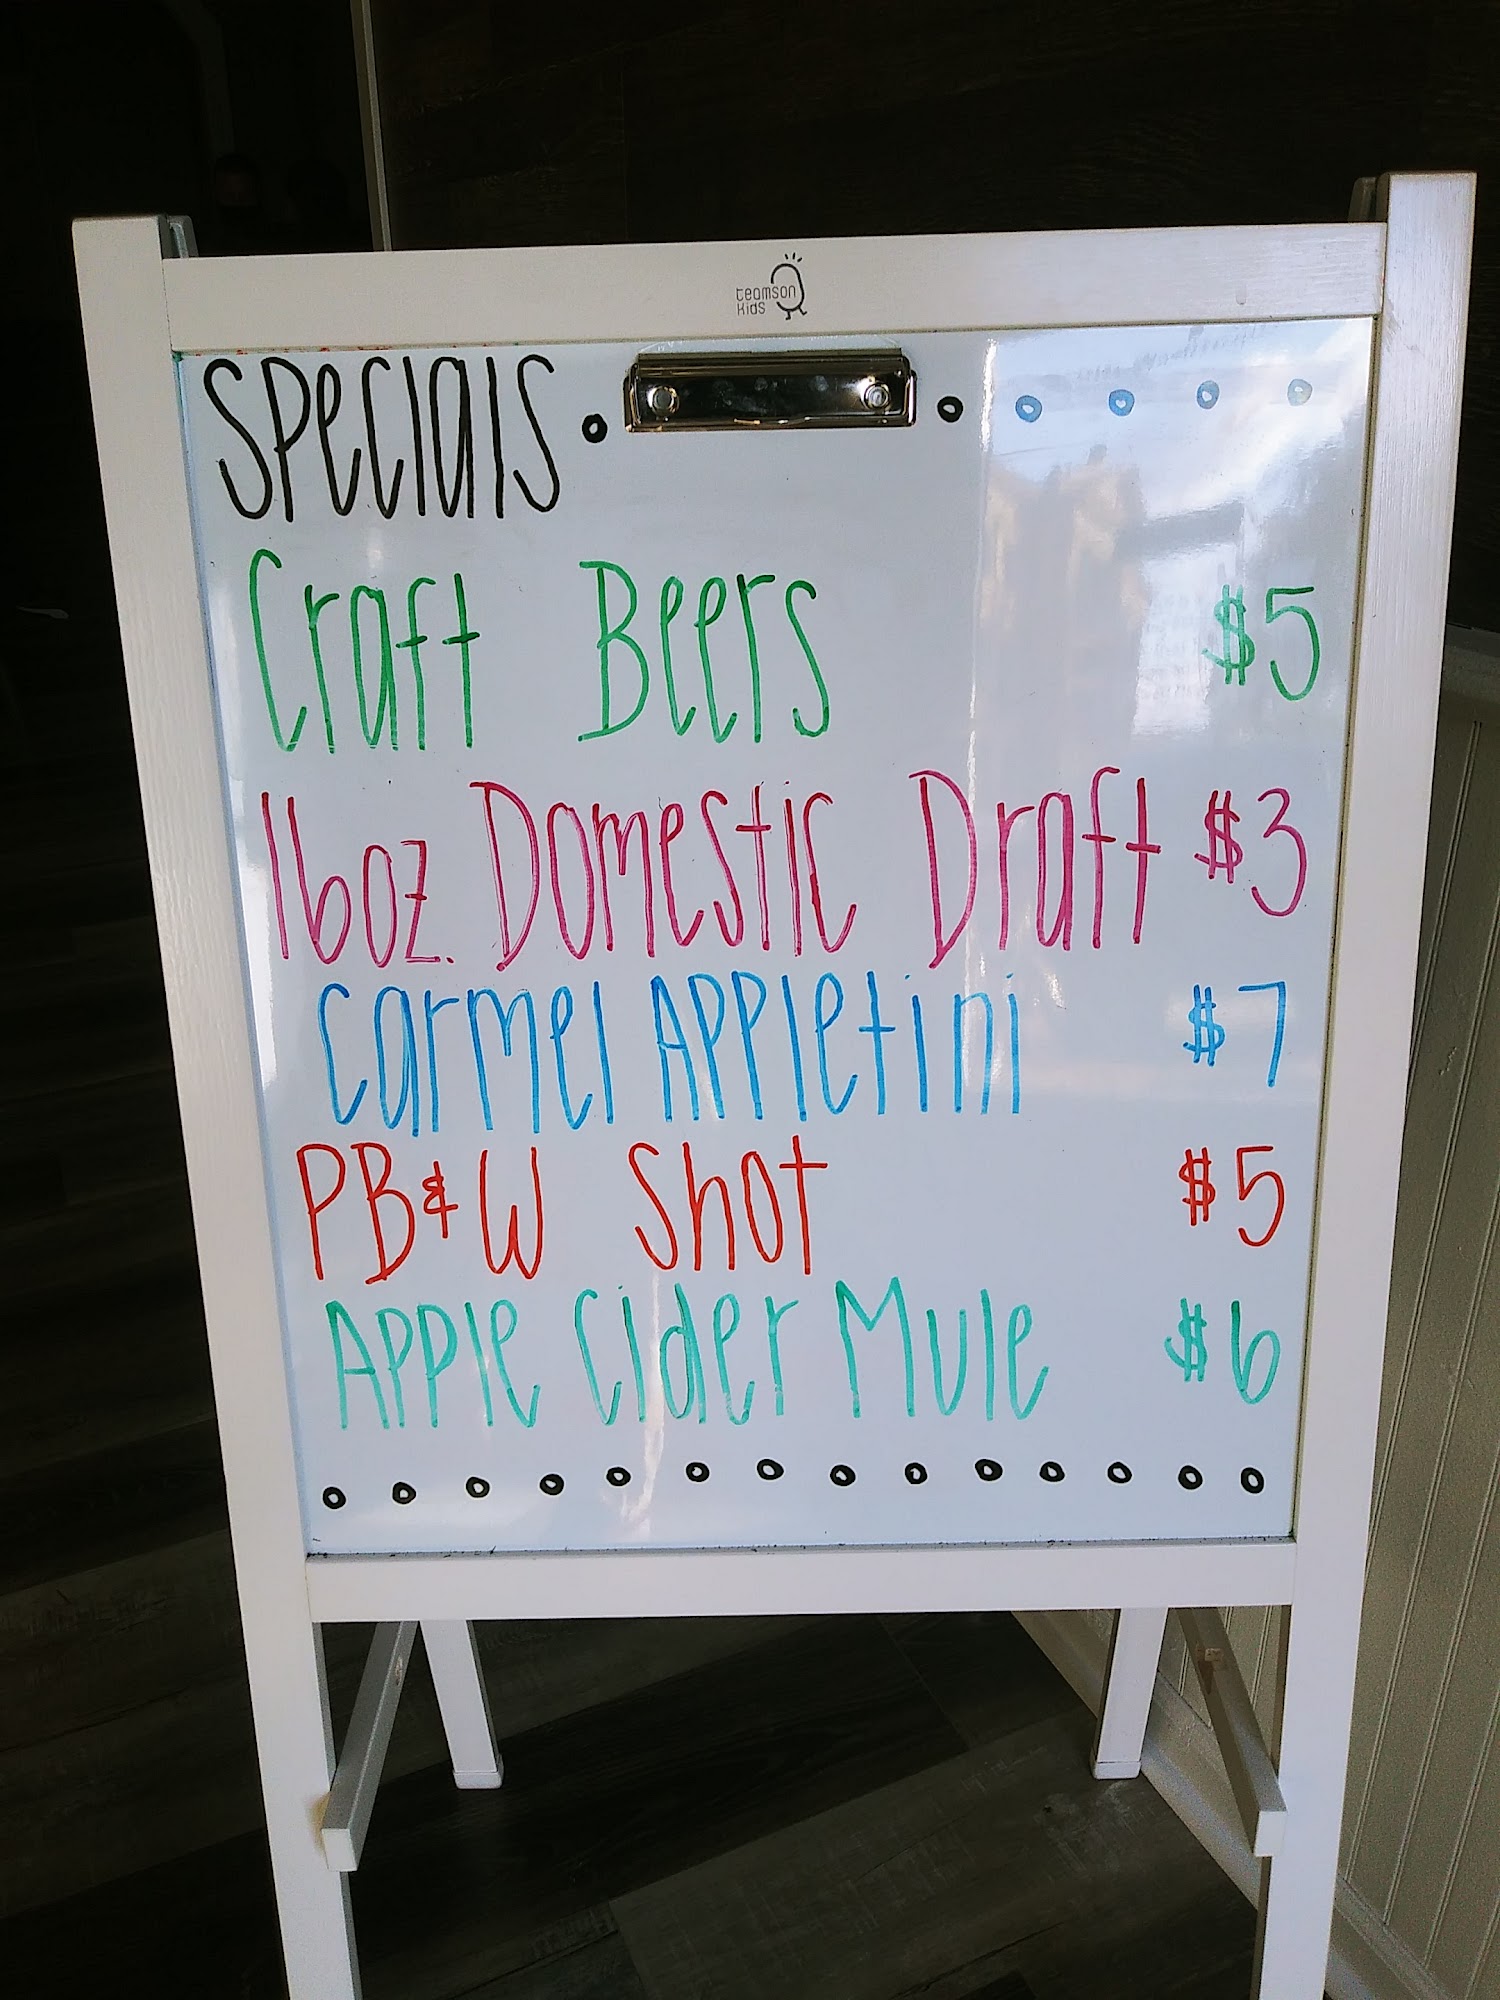 teamson
kids
Specials
Craft Beers $5
16oz. Domestic Draft $3
Carmel Appletini $7
PB&W Shot $5
Apple Cider Mule $6